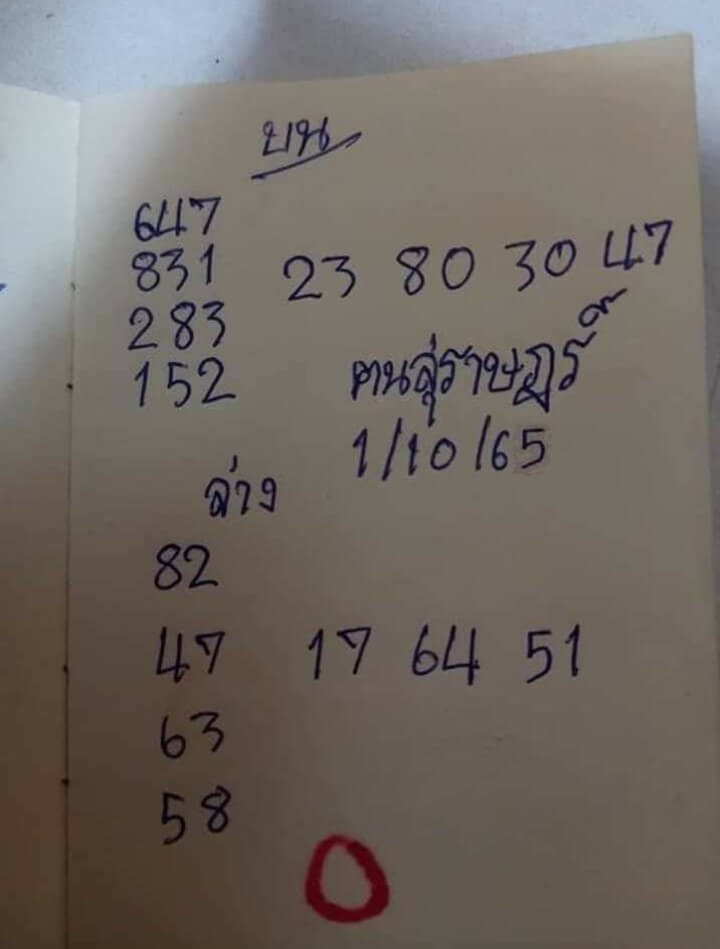 บน
647
831 23 80 30 47
283
152 คนสุ่ราษฎร์
1/10/65
ล่าง
82
47 17 64 51
63
58
0